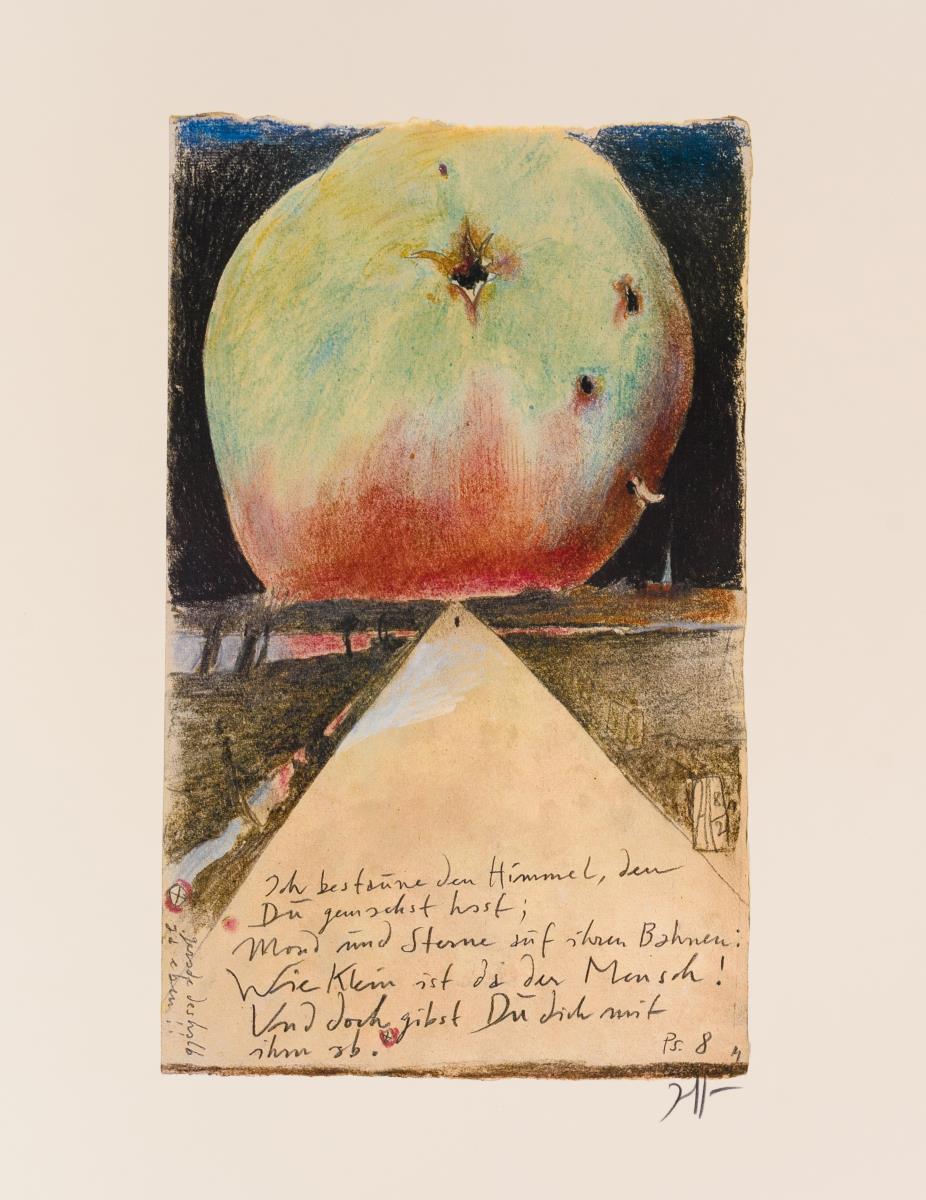 Ich bestaune den Himmel, den
Du gemachst hast;
Mond und Sterne auf ihren Bahnen:
Wie Klein ist da der Mensch!
Und doch gibst Du dich mit
ihm ab.
Ps. 8
gerade deshalb
ja eben!!
8
2